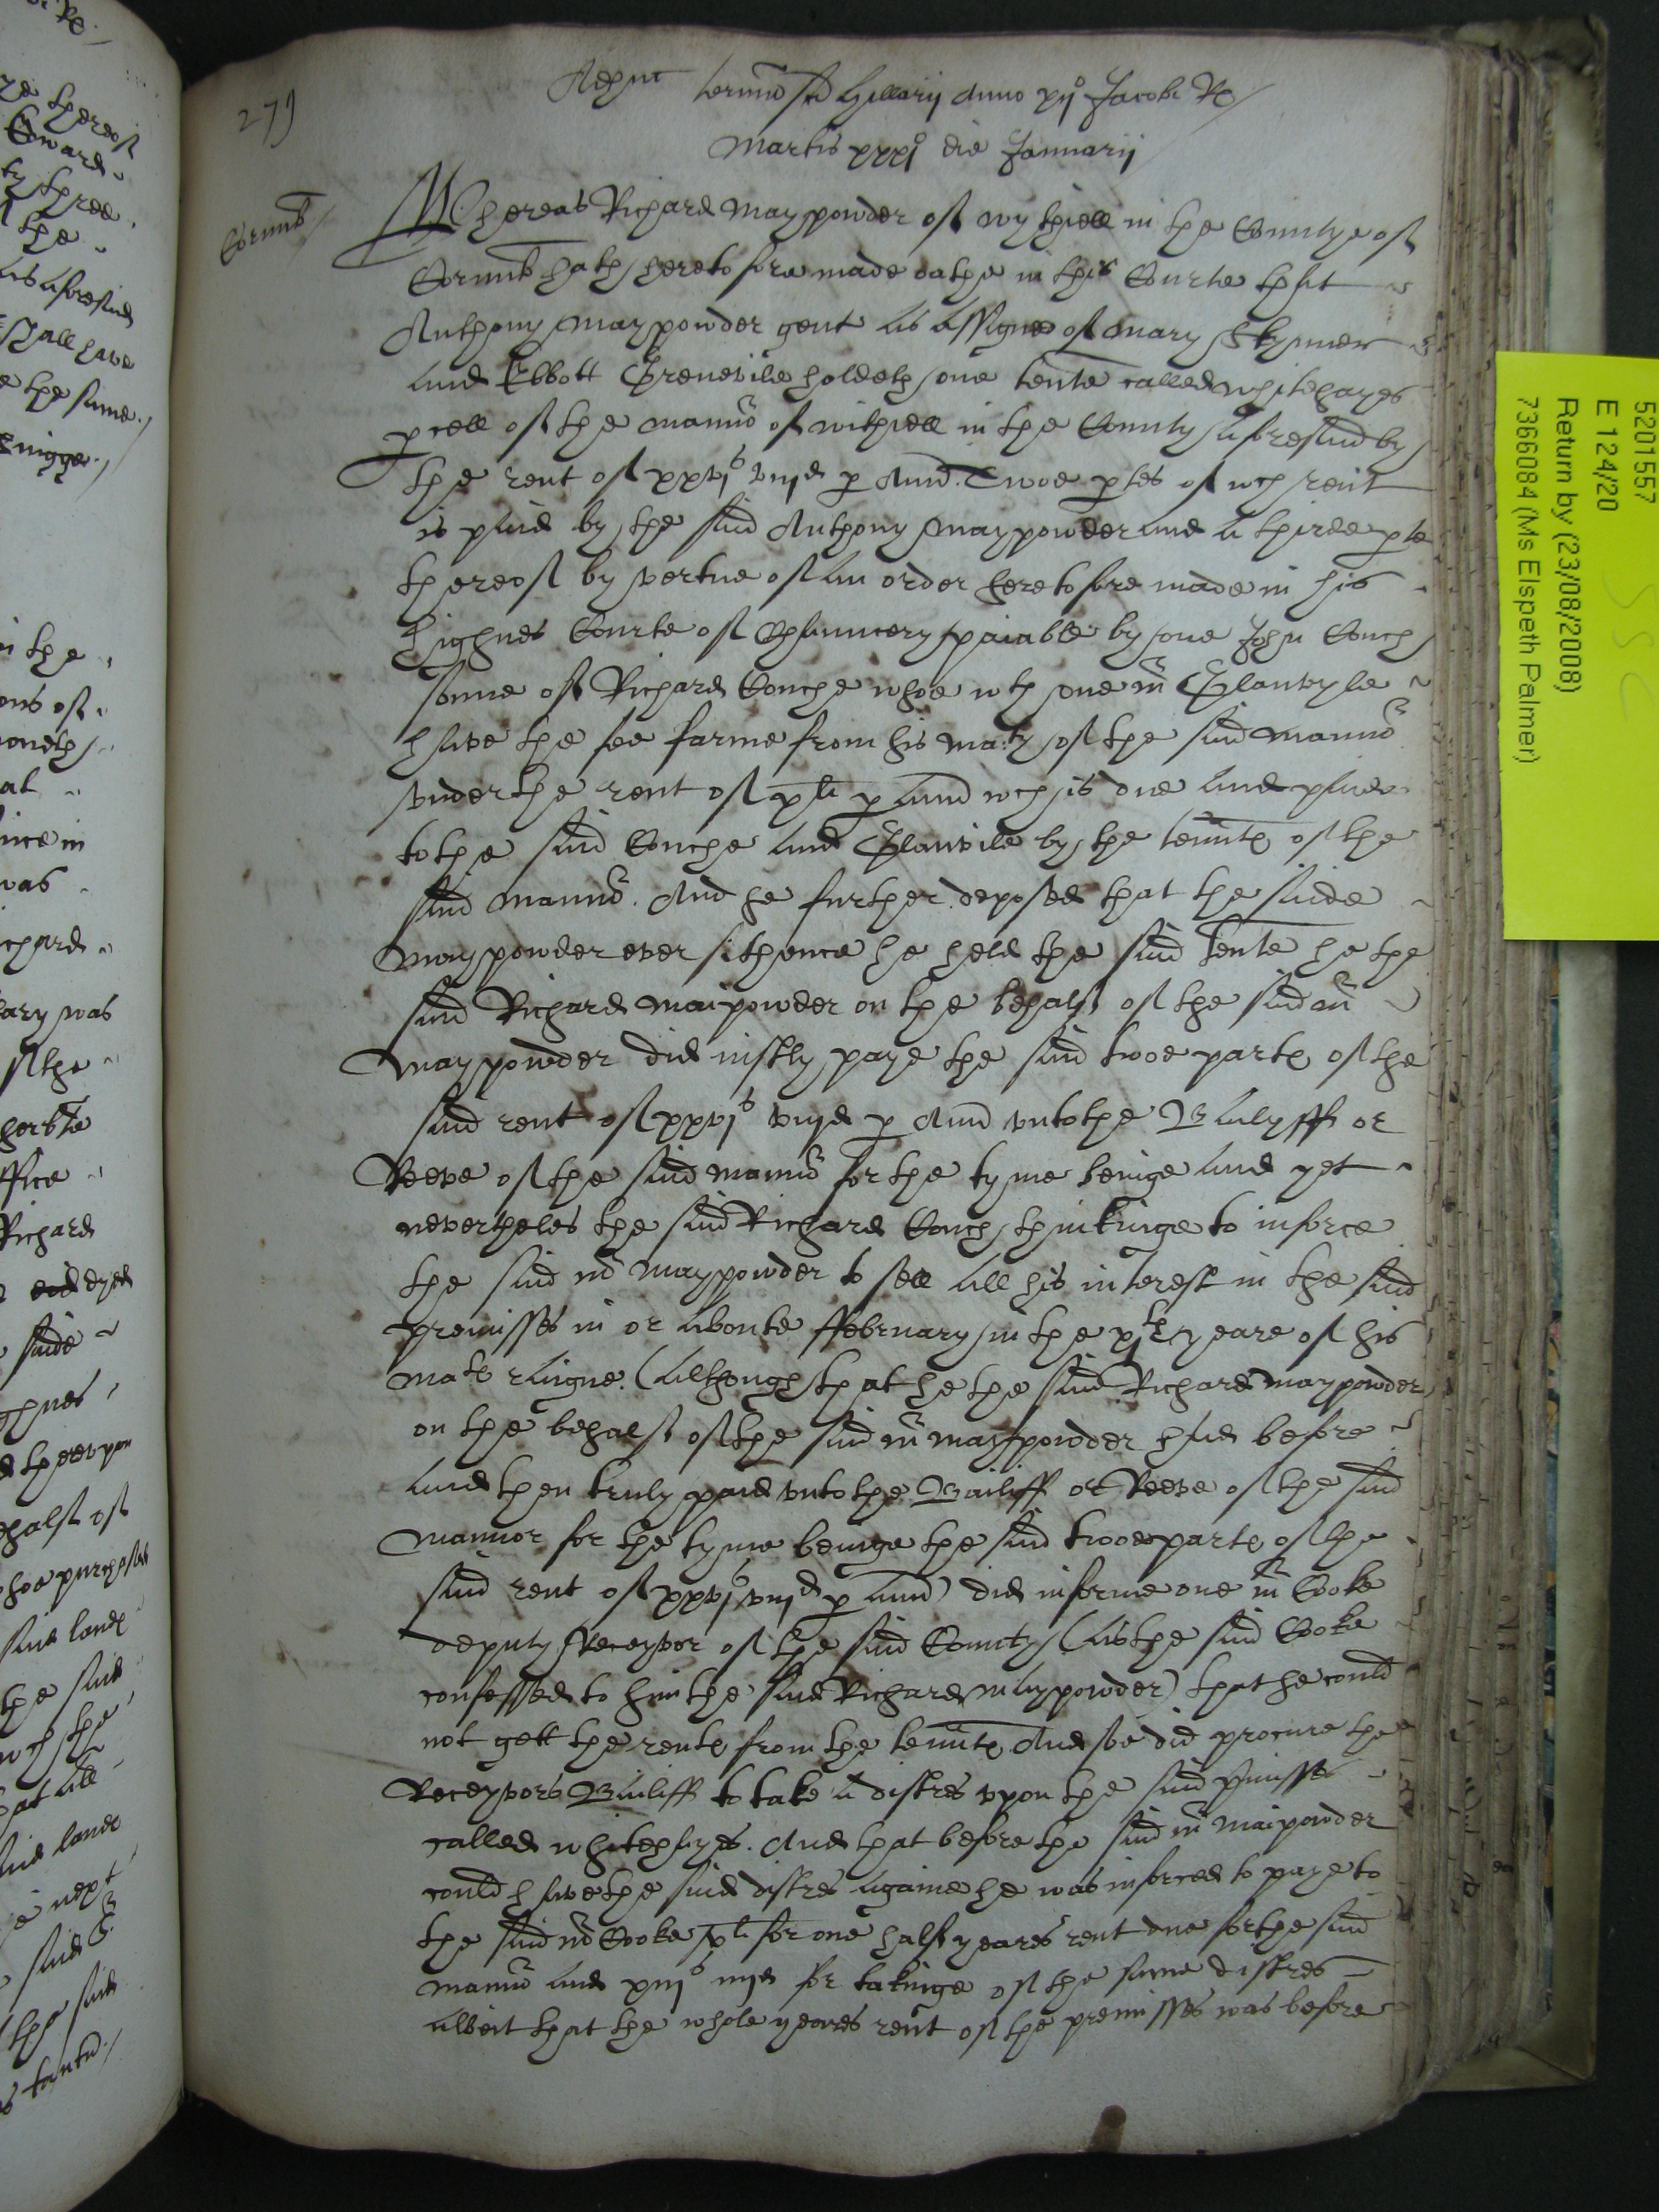 279
Adhuc termino scī Hillarij Anno xijº Jacobi Rs
Martis xxxjº die Januarij
Cornub
Whereas Richard Maypowder of wythiell in the Countye of
Cornub hath heretofore made oathe in this Courte that
Anthony Maypowder gent as assignee of Mary Skynner
and Ebbott Grenevile holdeth one tente called whitehayes
pcell of the mannor of withiell in the County aforesaid by
the rent of xxvjs viijd p Ann. Twoe ptes of wch rent
is paid by the said Anthony Maypowder and a thirde pte
thereof by vertue of an order heretofore made in his
highnes Courte of Chauncery paiable by one John Couch
sonne of Richard Couche whoe wth one mr Glanvyle
have the fee farme from his maty of the said mannor
vnder the rent of xli p ann wch is due and paide
to the said Couche and Glanvile by the tennts of the
said mannor. And he further deposed that the saide
Maypowder ever sithence he held the said tente he the
said Richard Maipowder on the behalf of the said mr
Maypowder did iustly paye the said twoe partes of the
said rent of xxvjs viijd p Ann vnto the Balyff or
Reeve of the said mannor for the tyme beinge and yet
nevertheles the said Richard Couch thinkinge to inforce
the said mr Maypowder to sell all his interest in the said
premisses in or aboute ffebruary in the xjth yeare of his
mats raigne. (Although that he the said Richard Maypowder
on the behalf of the said mr Maypowder had before
and then truly paid vnto the Bailiff or Reeve of the said
Mannor for the tyme beinge the said twoe partes of the
said rent of xxvjs viijd p ann) did informe one mr Cooke
deputy Receyvor of the said County (as the said Cooke
confessed to him the said Richard Maypowder) that he could
not gett the rents from the tennts And soe did procure the
Receyvors Bailiff to take a distres vpon the said pmisses
called whitehayes. And that before the said mr Maipowder
could have the said distres againe he was inforced to paye to
the said mr Cooke vli for one half yeares rent due for the said
mannor and xiijs iiijd for takinge of the same distres
albeit that the whole yeares rent of the premisses was before
5201557
E 124/20
Return by (23/08/2008)
7366084 (Ms Elspeth Palmer)